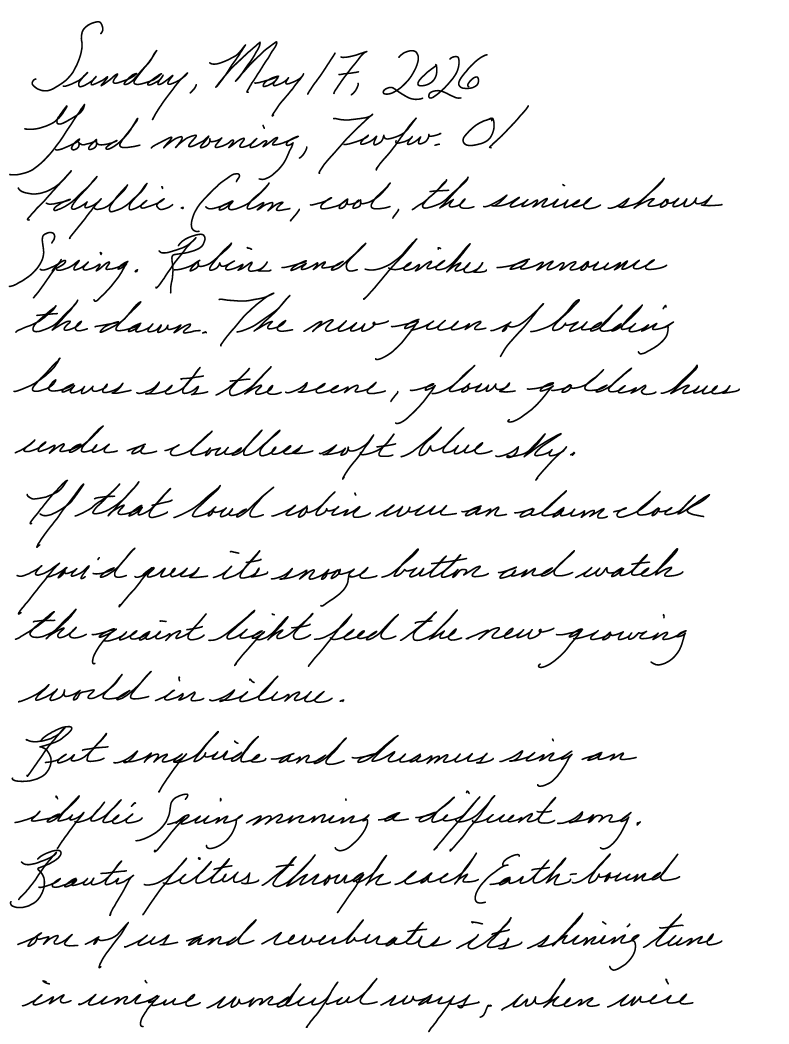 Sunday, May 17, 2026
Good morning, Twfw. 01
Idyllic. Calm, cool, the sunrise shows
Spring. Robins and finches announce
the dawn. The new green of budding
leaves sets the scene, glows golden hues
under a cloudless soft blue sky.
If that loud robin were an alarm clock
you'd press its snooze button and watch
the quaint light feed the new growing
world in silence.
But songbirds and dreamers sing an
idyllic Spring morning a different song.
Beauty filters through each Earth-bound
one of us and reverberates its shining tune
in unique wonderful ways, when we're